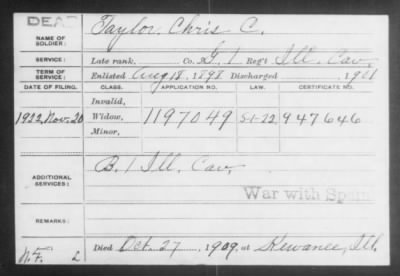 DEAD
NAME OF SOLDIER: Taylor, Chris C.
SERVICE: Late rank, Co. G. 1 Reg't Ill. Cav.
TERM OF SERVICE: Enlisted Aug 18, 1898 Discharged , 1901
DATE OF FILING. CLASS. APPLICATION NO. LAW. CERTIFICATE NO.
Invalid,
1922, Nov. 20 Widow, 1197049 5-1-22 947646
Minor,
ADDITIONAL SERVICES: B. 1 Ill. Cav.
War with Spain
REMARKS:
N.F. 2 Died Oct. 27, 1909, at Kewanee, Ill.